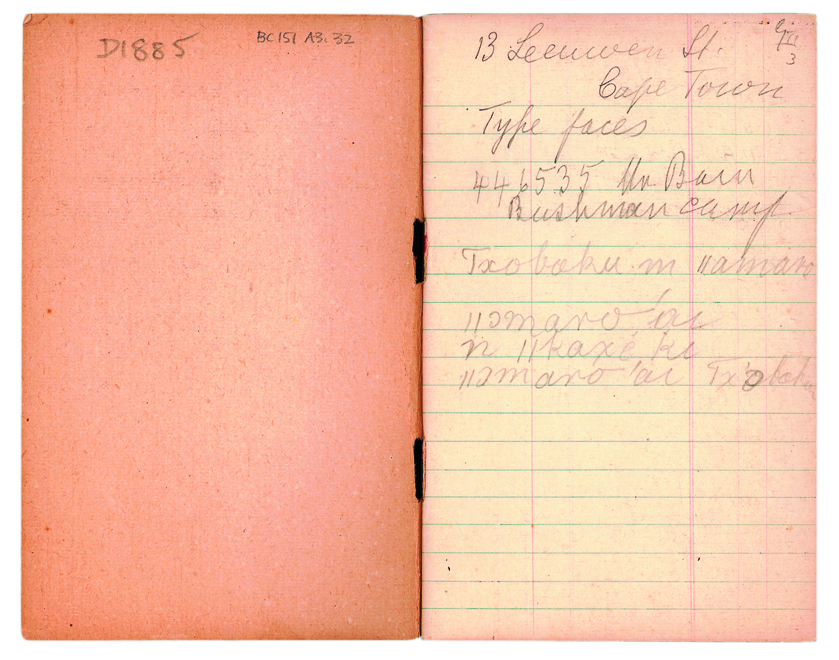 D1885
BC151 A3.32
13 Leeuwen St.
Cape Town
Type faces
446535 Mr Bain
Bushman camp
Txobaku m ǁamaro
ǁɔmaro 'ai
n ǁkaxe ki
ǁɔmaro 'ai Tx'obaku